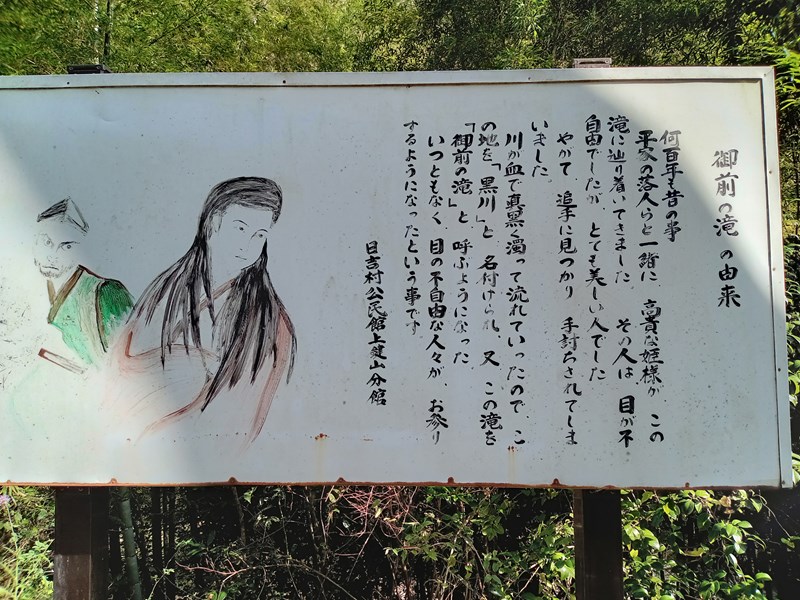 御前の滝の由来
何百年も昔の事
平家の落人らと一緒に、高貴な姫様が、この
滝に辿り着いてきました。その人は、目が不
自由でしたが、とても美しい人でした
やがて、追手に見つかり、手討ちされてしま
いました。
川が血で真黒く濁って流れていったので、こ
の地を「黒川」と、名付けられ、又、この滝を
「御前の滝」と、呼ぶようになった。
いつともなく、目の不自由な人々が、お参り
するようになったという事です
日吉村公民館上鍵山分館